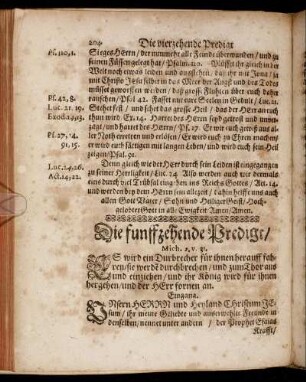 204 Die vierzehende Predigt
Pſ. 110, 1. Sieges-Herrn / der nunmehr alle Feinde überwunden / und zu
ſeinen Füſſen gelegt hat / Pſalm. 110. Müſſet ihr gleich in der
Welt noch etwas leiden und ausſtehen / daß ihr wie Jona / ja
mit Chriſto Jeſu ſelber in das Meer der Angſt und des Todes
müſſet geworffen werden / daß groſſe Fluhten über euch daher
Pſ. 42, 8. rauſchen / Pſal. 42. Faſſet nur eure Seelen in Gedult / Luc. 21.
Luc. 21. 19. Stehet feſt / und ſehet das groſſe Heil / das der Herr an euch
Exod. 14. 13. thun wird / Ex. 14. Harret des Herrn ſeyd getroſt und unver-
Pſ. 27, 14. zagt / und harret des Herrn / Pſ. 27. Er wird euch gewiß aus al-
91, 15. ler Noht erretten und erlöſen / Er wird euch zu Ehren machen /
und wird euch ſättigen mit langen Leben / und wird euch ſein Heil
zeigen / Pſal. 91.
Denn gleich wie der Herr durch ſein Leiden iſt eingegangen zu
Luc. 24. 26. ſeiner Herrligkeit / Luc. 24. Alſo werden auch wir dermals
Act. 14, 22. eins durch viel Trübſal eingehen ins Reich Gottes / Act. 14.
und werden bey dem Herrn ſein allezeit / dahin helffe uns auch
allen Gott Vater / Sohn und Heiliger Geiſt / Hoch-
gelobter Gott in alle Ewigkeit Amen / Amen.
Die funffzehende Predigt /
Mich. 2, v. 13.
ES wird ein Durbrecher für ihnen herauff fah-
ren / ſie werdē durchbrechen / und zum Thor aus
und einziehen / und ihr König wird für ihnen
hergehen / und der HErr fornen an.
Eingang.
UNſern HERRN und Heyland Chriſtum JE-
ſum / ihr meine Geliebte und auserwehlte Freunde in
demſelben / nennet unter andern / der Prophet Eſaias
Krafft /